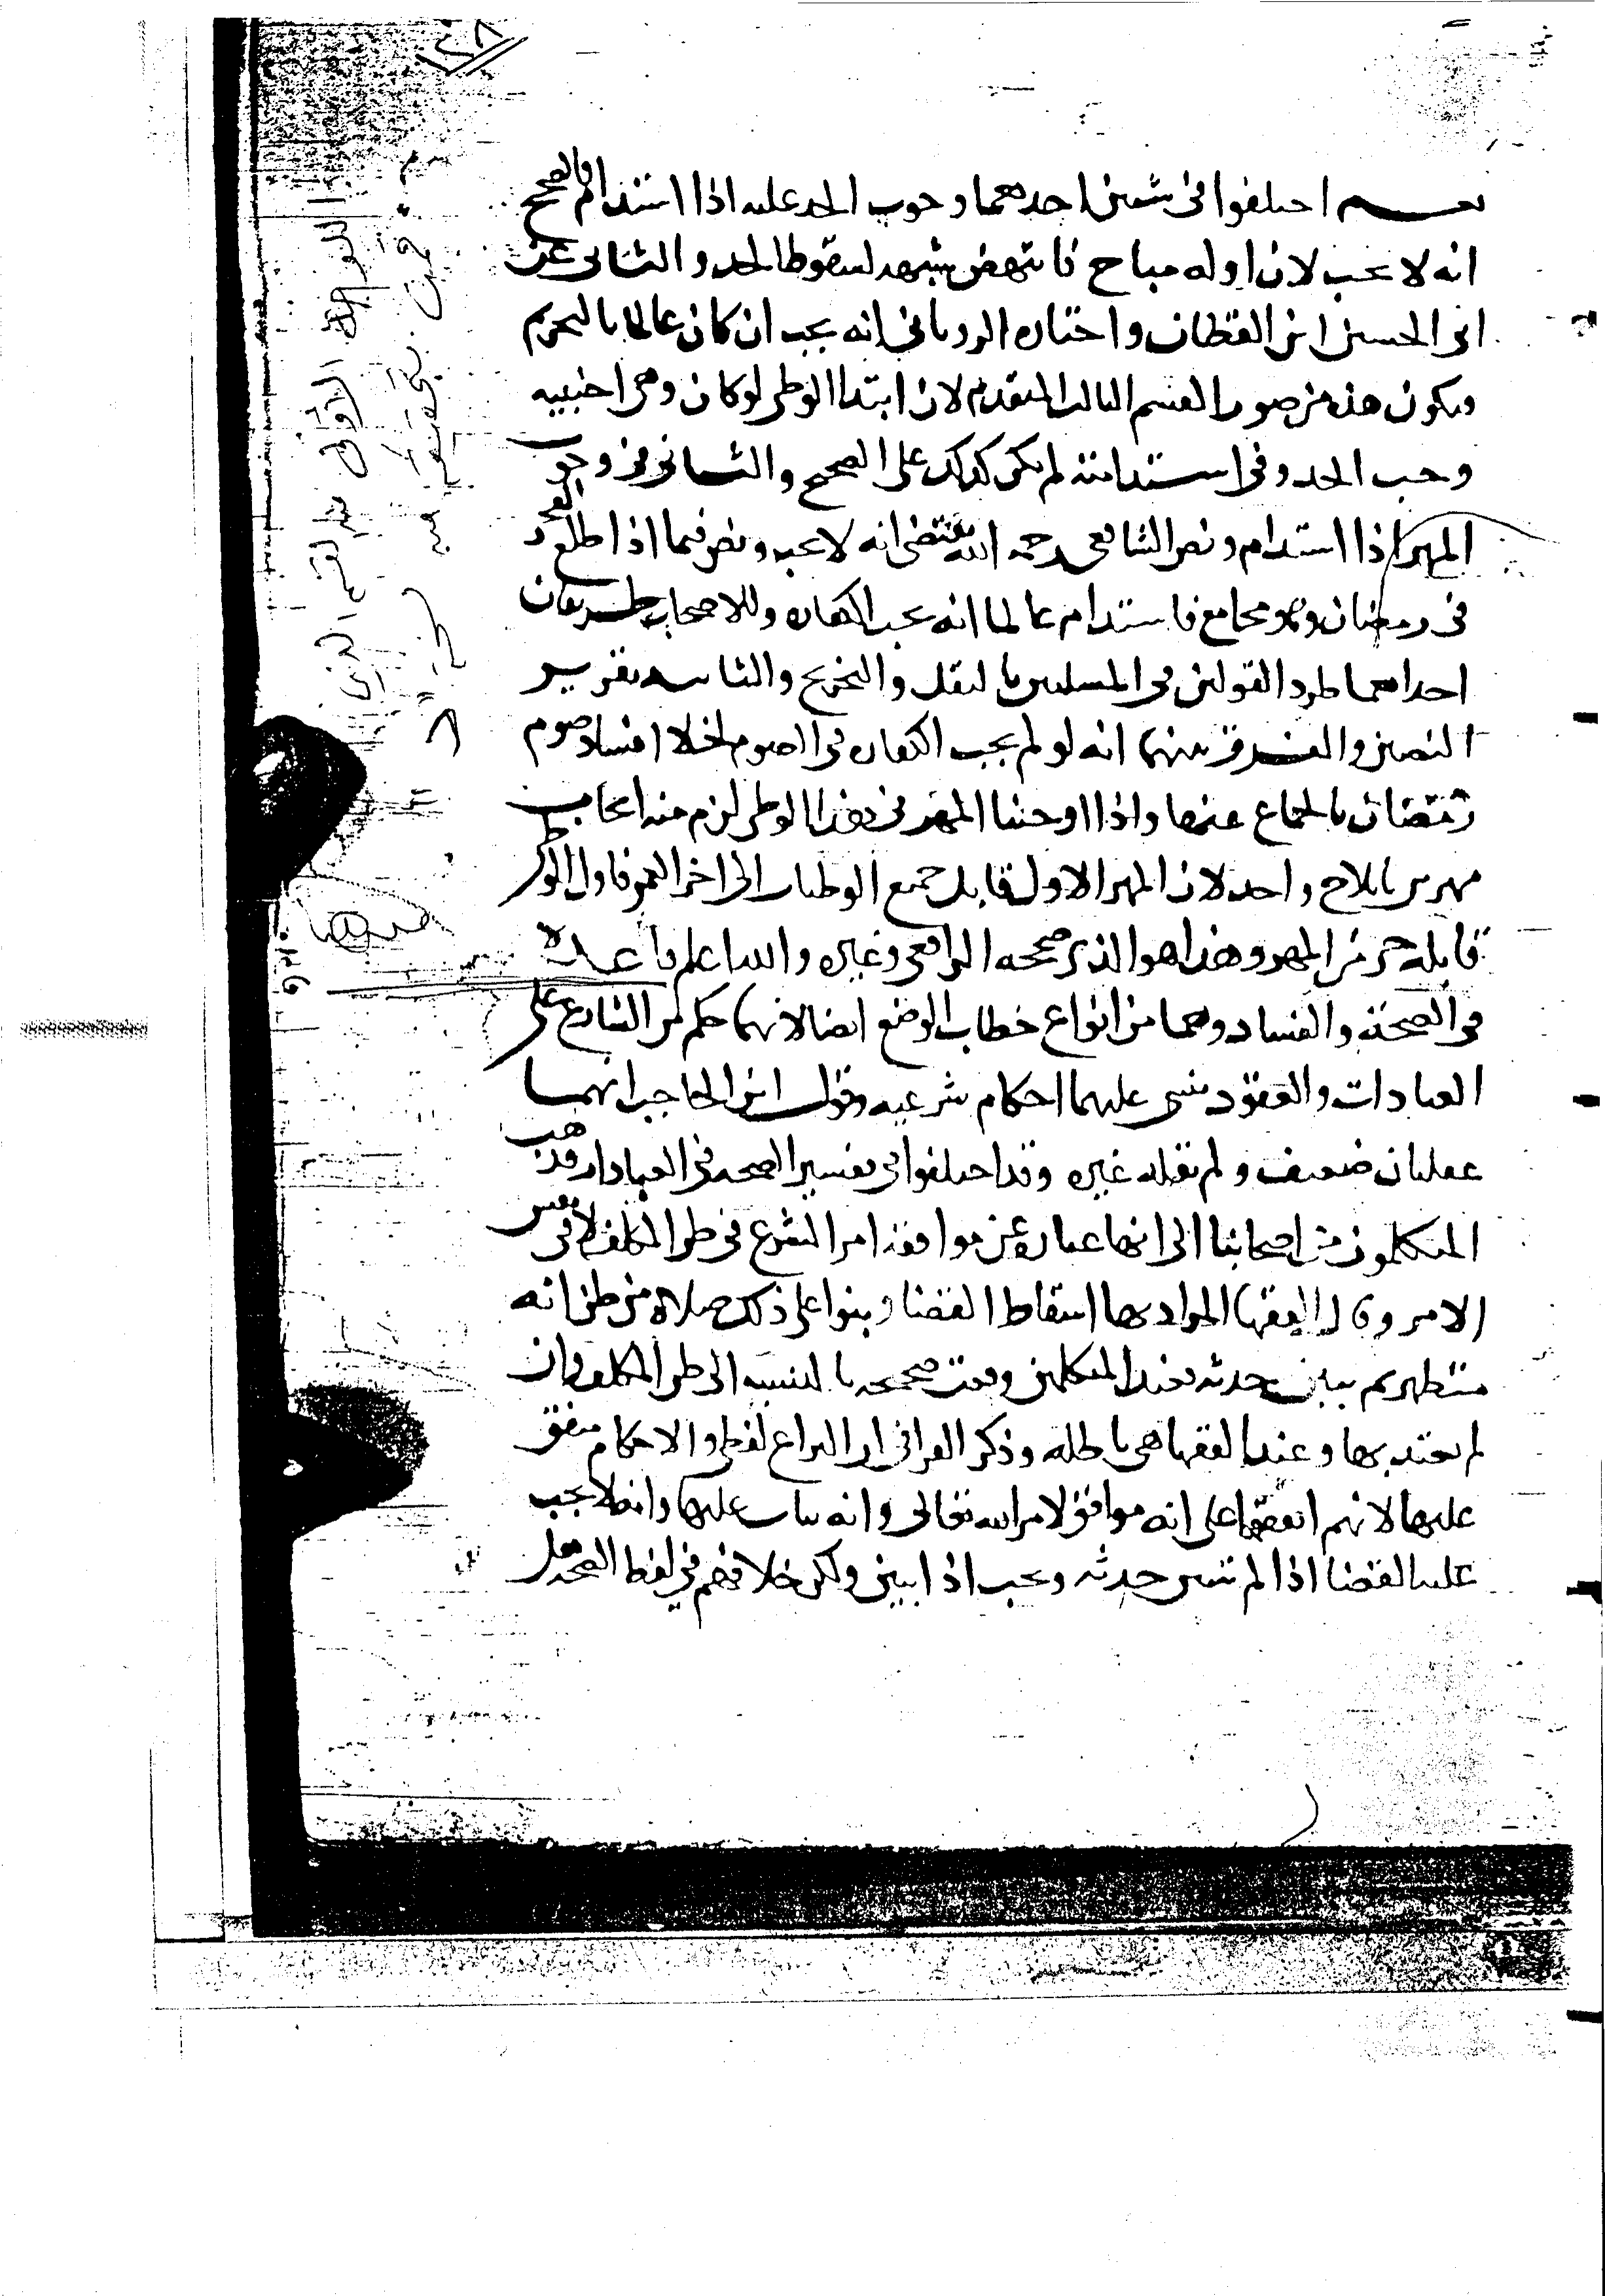 ٢٨
نعم اختلفوا في شيئين احدهما وجوب الحد عليه اذا استدام فالصحيح
انه لا يجب لان اوله مباح فانتهض شبهه لسقوط الحد والثاني عن
ابي الحسين ابن القطان واختاره الروياني انه يجب ان كان عالما بالتحريم
ويكون هذه من صور القسم الثالث المتقدم لان ابتدا الوطي لو كان وهي اجنبيه
وجب الحد وفي استدامته لم يكن كذلك على الصحيح والثاني في وجوب
المهر اذا استدام ونص الشافعي رحمه الله يقتضي انه لا يجب ونص فيما اذا طلع الفجر
في رمضان وهو مجامع فاستدام عالما انه يجب الكفاره وللاصحاب طريقان
احداهما طرد القولين في المسلتين بالنقل والتخريج والثانيه تقرير
النصين والفرق بينهما انه لو لم يجب الكفاره في الصوم لخلا افساد صوم
رمضان بالجماع عنها واذا اوجبنا المهر في هذا الوطي لزم منه ايجاب
مهرين بايلاج واحد لان المهر الاول قابل جميع الوطيات الى اخر العمر فاول الوطي
قابله جزء من المهر وهذا هو الذي صححه الرافعي وغيره والله اعلم قاعدة
في الصحة والفساد وهما من انواع خطاب الوضع ايضا لانهما حكم من الشارع على
العبادات والعقود ينبني عليهما احكام شرعيه وقول ابن الحاجب انهما
عقليان ضعيف ولم نقله غيره وقد اختلفوا في تفسير الصحه في العبادات فذهب
المتكلمون من اصحابنا الى انها عباره عن موافقة امر الشرع في ظن المكلف لا في نفس
الامر وقال الفقها المراد بها اسقاط القضا وبنوا على ذلك صلاة من ظن انه
متطهر ثم يتبين حدثه فعند المتكلمين وقعت صحيحه بالنسبه الى ظن المكلف وان
لم يعتد بها وعند الفقها هي باطله وذكر القرافي ان النزاع لفظي والاحكام متفق
عليها لانهم اتفقوا على انه موافق لامر الله تعالى وانه يثاب عليها وانه لا يجب
عليه القضا اذا لم يتبين حدثه ويجب اذا تبين ولكن خلافهم في لفظ الصحه هل